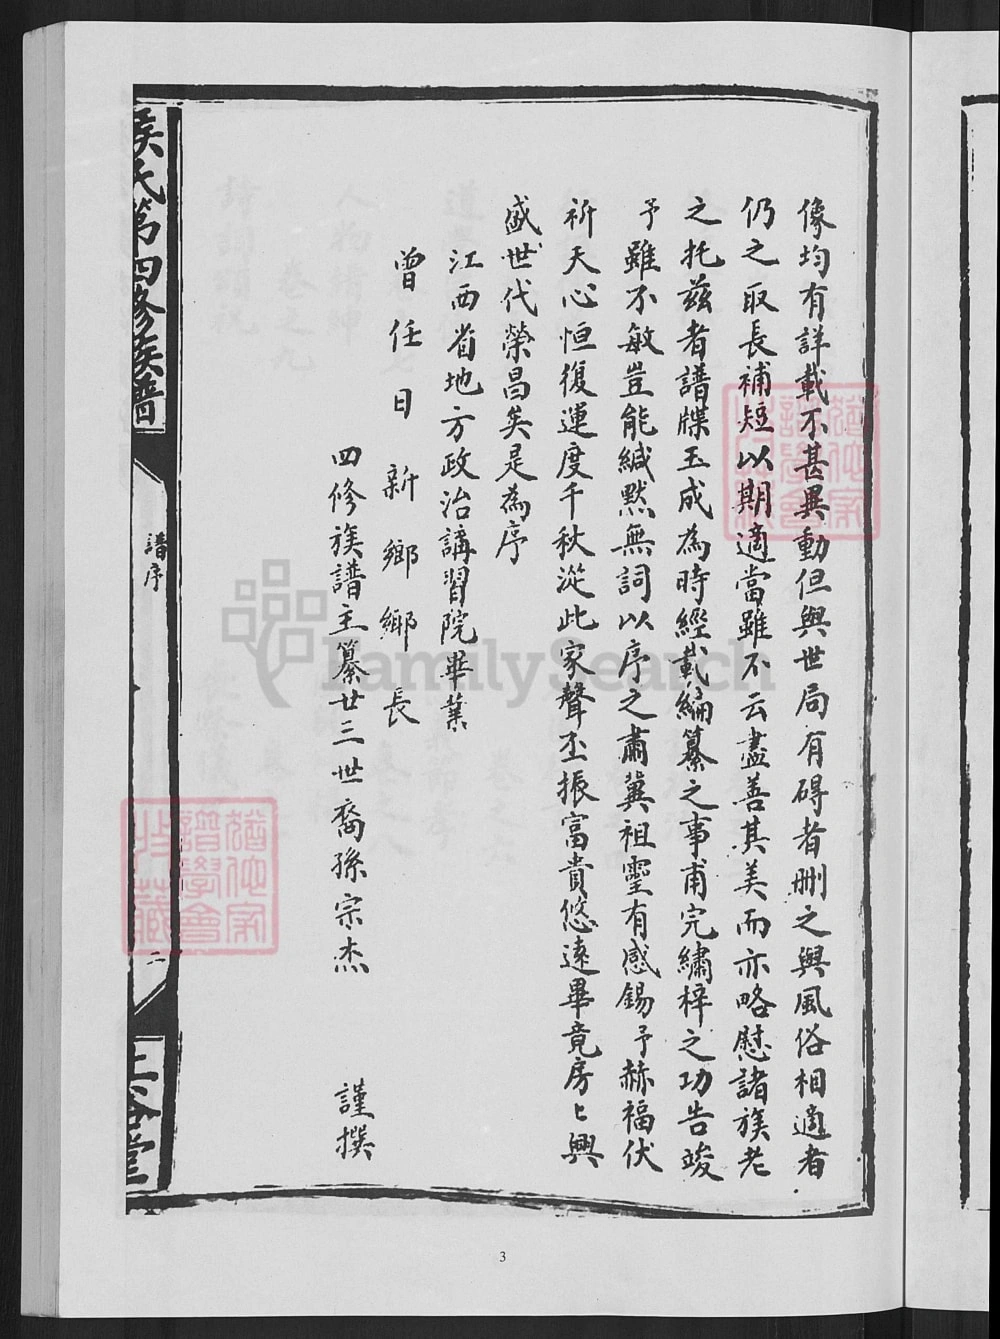 像均有詳載不甚異動但與世局有碍者删之與風俗相適者
仍之取長補短以期適當雖不云盡善其美而亦略慰諸族老
之托茲者譜牒玉成為時經載編纂之事甫完繡梓之功告竣
予雖不敏豈能緘默無詞以序之肅冀祖靈有感錫予赫福伏
祈天心恒復運度千秋從此家聲丕振富貴悠遠畢竟房匕興
盛世代榮昌矣是為序
江西省地方政治講習院畢業
曾任日新鄉鄉長
四修族譜主纂廿三世裔孫宗杰 謹撰
侯氏第四修族譜
譜序
二
上谷堂
猶他家
譜學會
收藏
猶他家
譜學會
收藏
FamilySearch
3